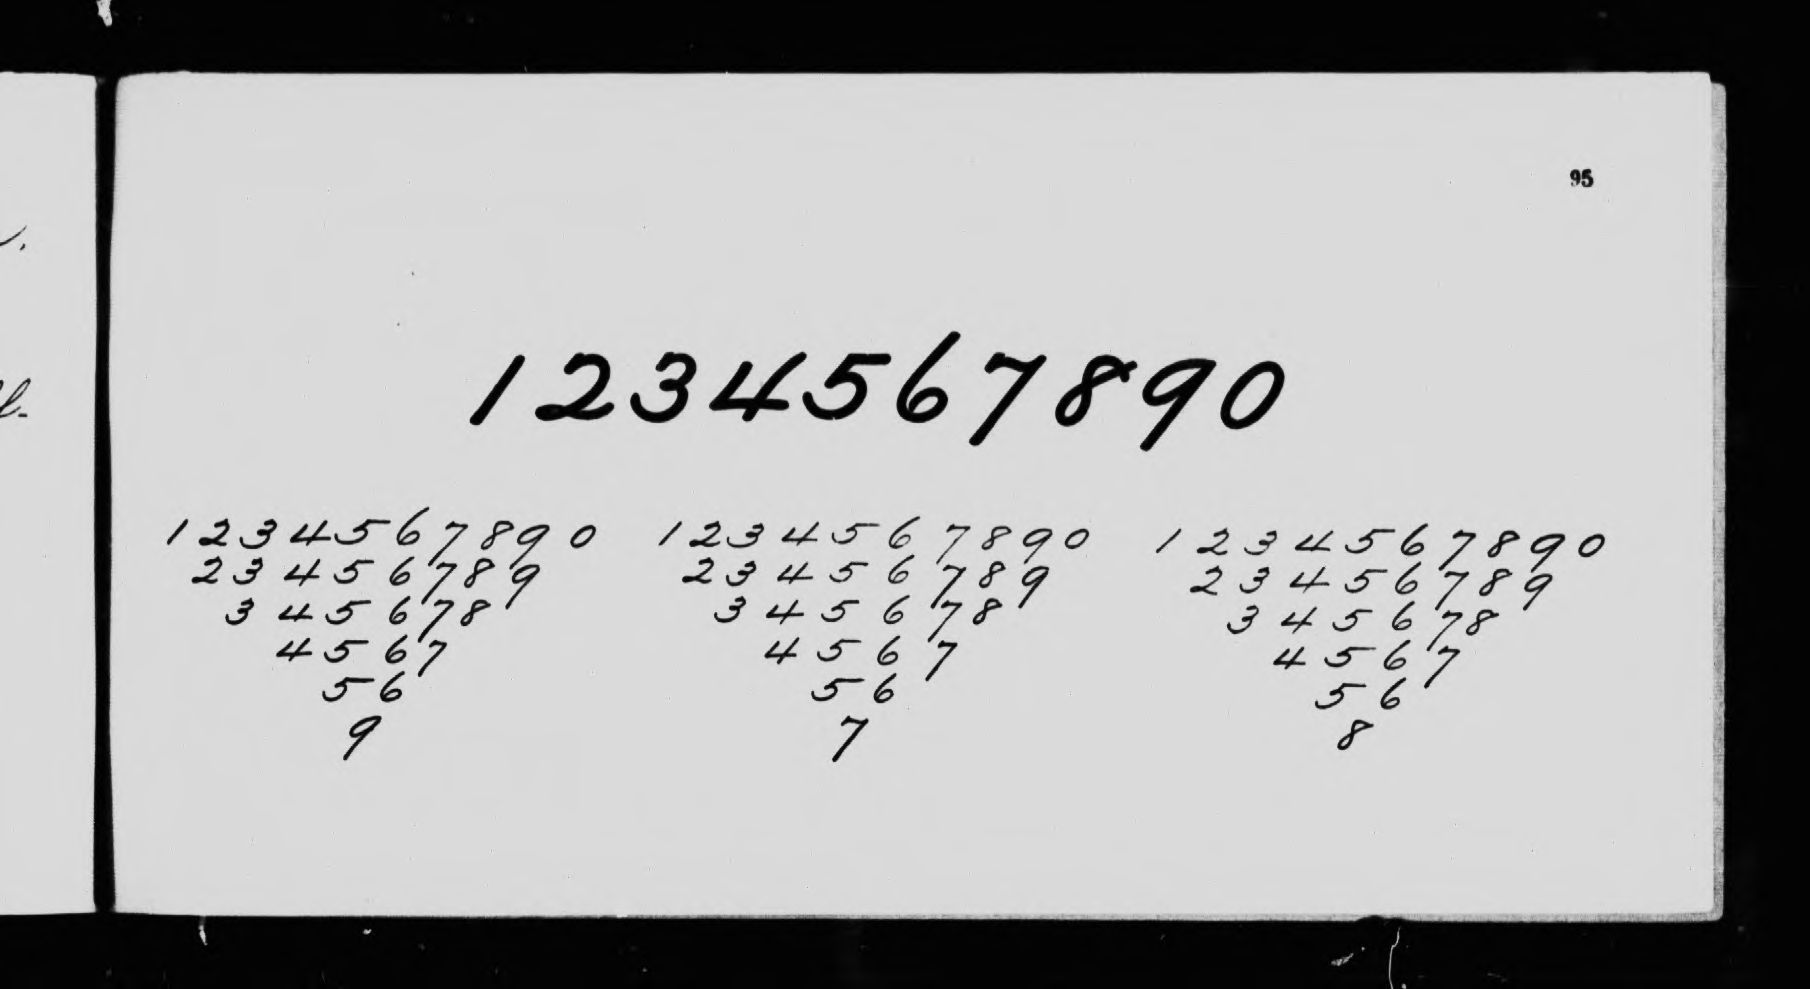 95
1 2 3 4 5 6 7 8 9 0
1 2 3 4 5 6 7 8 9 0
2 3 4 5 6 7 8 9
3 4 5 6 7 8
4 5 6 7
5 6
9
1 2 3 4 5 6 7 8 9 0
2 3 4 5 6 7 8 9
3 4 5 6 7 8
4 5 6 7
5 6
7
1 2 3 4 5 6 7 8 9 0
2 3 4 5 6 7 8 9
3 4 5 6 7 8
4 5 6 7
5 6
8